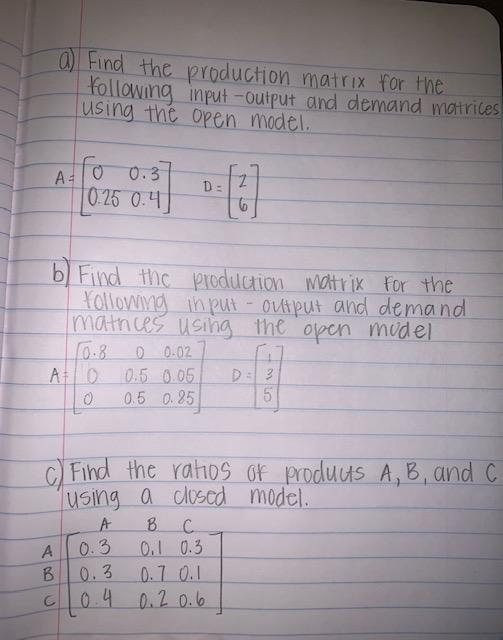 a) Find the production matrix for the
following input-output and demand matrices
using the open model.
A = [0 0.3
0.25 0.4] D = [2
6]
b) Find the production matrix for the
following input-output and demand
matrices using the open model
A = [0.8 0 0.02
0 0.5 0.05
0 0.5 0.85] D = [1
3
5]
c) Find the ratios of products A, B, and C
using a closed model.
A B C
A [0.3 0.1 0.3
B 0.3 0.7 0.1
C 0.4 0.2 0.6]